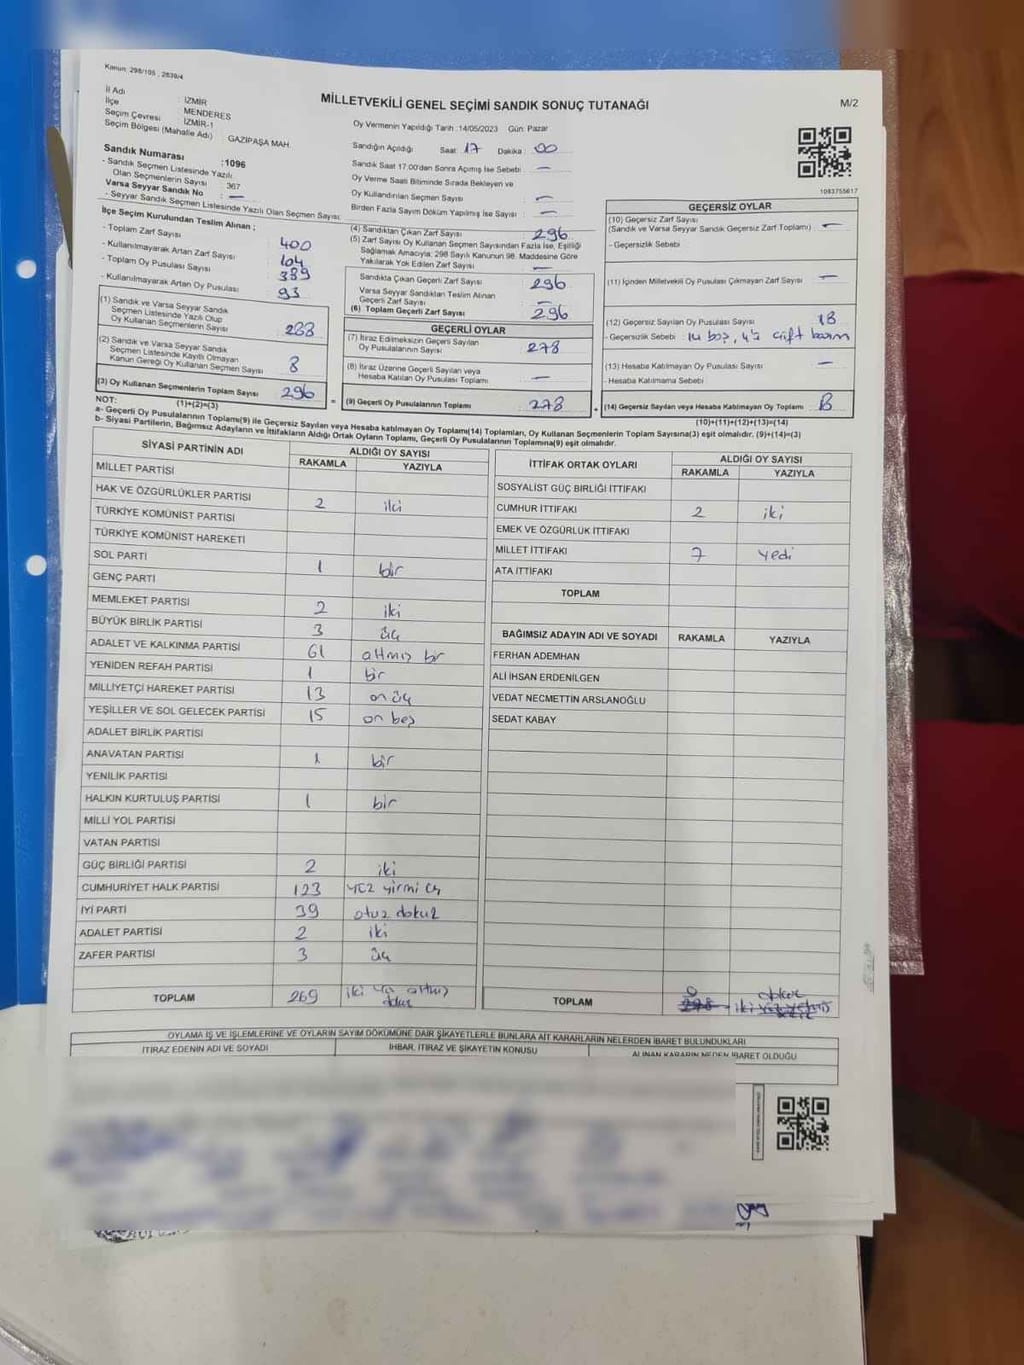 Kanun: 298/105 , 2839/4
MİLLETVEKİLİ GENEL SEÇİMİ SANDIK SONUÇ TUTANAĞI
M/2
İl Adı : İZMİR
İlçe : MENDERES
Seçim Çevresi İZMİR-1
Seçim Bölgesi (Mahalle Adı) GAZİPAŞA MAH.
Oy Vermenin Yapıldığı Tarih :14/05/2023 Gün: Pazar
Sandığın Açıldığı Saat: 17 Dakika : 00
Sandık Saat 17.00'den Sonra Açılmış İse Sebebi : —
Oy Verme Saati Bitiminde Sırada Bekleyen ve
Oy Kullandırılan Seçmen Sayısı : —
Birden Fazla Sayım Döküm Yapılmış İse Sayısı : —
1093755617
Sandık Numarası :1096
- Sandık Seçmen Listesinde Yazılı
Olan Seçmenlerin Sayısı : 367
Varsa Seyyar Sandık No : —
- Seyyar Sandık Seçmen Listesinde Yazılı Olan Seçmen Sayısı:
İlçe Seçim Kurulundan Teslim Alınan ;
- Toplam Zarf Sayısı : 400
- Kullanılmayarak Artan Zarf Sayısı : 104
- Toplam Oy Pusulası Sayısı : 389
- Kullanılmayarak Artan Oy Pusulası : 93
(1) Sandık ve Varsa Seyyar Sandık
Seçmen Listesinde Yazılı Olup
Oy Kullanan Seçmenlerin Sayısı : 288
(2) Sandık ve Varsa Seyyar Sandık
Seçmen Listesinde Kayıtlı Olmayan
Kanun Gereği Oy Kullanan Seçmen Sayısı : 8
(3) Oy Kullanan Seçmenlerin Toplam Sayısı : 296
(1)+(2)=(3)
(4) Sandıktan Çıkan Zarf Sayısı : 296
(5) Zarf Sayısı Oy Kullanan Seçmen Sayısından Fazla İse, Eşitliği
Sağlamak Amacıyla; 298 Sayılı Kanunun 98. Maddesine Göre
Yakılarak Yok Edilen Zarf Sayısı : —
Sandıkta Çıkan Geçerli Zarf Sayısı : 296
Varsa Seyyar Sandıktan Teslim Alınan
Geçerli Zarf Sayısı : —
(6) Toplam Geçerli Zarf Sayısı : 296
GEÇERLİ OYLAR
(7) İtiraz Edilmeksizin Geçerli Sayılan
Oy Pusulasının Sayısı : 278
(8) İtiraz Üzerine Geçerli Sayılan veya
Hesaba Katılan Oy Pusulası Toplamı : —
= (9) Geçerli Oy Pusulalarının Toplamı : 278
GEÇERSİZ OYLAR
(10) Geçersiz Zarf Sayısı
(Sandık ve Varsa Seyyar Sandık Geçersiz Zarf Toplamı) : —
- Geçersizlik Sebebi :
(11) İçinden Milletvekili Oy Pusulası Çıkmayan Zarf Sayısı : —
(12) Geçersiz Sayılan Oy Pusulası Sayısı : 18
- Geçersizlik Sebebi : 14 boş, 4'ü çift basım
(13) Hesaba Katılmayan Oy Pusulası Sayısı : —
- Hesaba Katılmama Sebebi :
+ (14) Geçersiz Sayılan veya Hesaba Katılmayan Oy Toplamı : 18
(10)+(11)+(12)+(13)=(14)
NOT:
a- Geçerli Oy Pusulaları Toplamı(9) ile Geçersiz Sayılan veya Hesaba Katılmayan Oy Toplamı(14) Toplamları, Oy Kullanan Seçmenlerin Toplam Sayısına(3) eşit olmalıdır. (9)+(14)=(3)
b- Siyasi Partilerin, Bağımsız Adayların ve İttifakların Aldığı Ortak Oyların Toplamı, Geçerli Oy Pusulalarının Toplamına(9) eşit olmalıdır.
SİYASİ PARTİNİN ADI ALDIĞI OY SAYISI
RAKAMLA YAZIYLA
MİLLET PARTİSİ
HAK VE ÖZGÜRLÜKLER PARTİSİ 2 iki
TÜRKİYE KOMÜNİST PARTİSİ
TÜRKİYE KOMÜNİST HAREKETİ
SOL PARTİ 1 bir
GENÇ PARTİ
MEMLEKET PARTİSİ 2 iki
BÜYÜK BİRLİK PARTİSİ 3 üç
ADALET VE KALKINMA PARTİSİ 61 altmış bir
YENİDEN REFAH PARTİSİ 1 bir
MİLLİYETÇİ HAREKET PARTİSİ 13 on üç
YEŞİLLER VE SOL GELECEK PARTİSİ 15 on beş
ADALET BİRLİK PARTİSİ
ANAVATAN PARTİSİ 1 bir
YENİLİK PARTİSİ
HALKIN KURTULUŞ PARTİSİ 1 bir
MİLLİ YOL PARTİSİ
VATAN PARTİSİ
GÜÇ BİRLİĞİ PARTİSİ 2 iki
CUMHURİYET HALK PARTİSİ 123 yüz yirmi üç
İYİ PARTİ 39 otuz dokuz
ADALET PARTİSİ 2 iki
ZAFER PARTİSİ 3 üç
TOPLAM 269 iki yüz altmış dokuz
İTTİFAK ORTAK OYLARI ALDIĞI OY SAYISI
RAKAMLA YAZIYLA
SOSYALİST GÜÇ BİRLİĞİ İTTİFAKI
CUMHUR İTTİFAKI 2 iki
EMEK VE ÖZGÜRLÜK İTTİFAKI
MİLLET İTTİFAKI 7 yedi
ATA İTTİFAKI
TOPLAM
BAĞIMSIZ ADAYIN ADI VE SOYADI RAKAMLA YAZIYLA
FERHAN ADEMHAN
ALİ İHSAN ERDENİLGEN
VEDAT NECMETTİN ARSLANOĞLU
SEDAT KABAY
TOPLAM 9 dokuz
OYLAMA İŞ VE İŞLEMLERİNE VE OYLARIN SAYIM DÖKÜMÜNE DAİR ŞİKAYETLERLE BUNLARA AİT KARARLARIN NELERDEN İBARET BULUNDUKLARI
İTİRAZ EDENİN ADI VE SOYADI İHBAR, İTİRAZ VE ŞİKAYETİN KONUSU ALINAN KARARIN NEDEN İBARET OLDUĞU